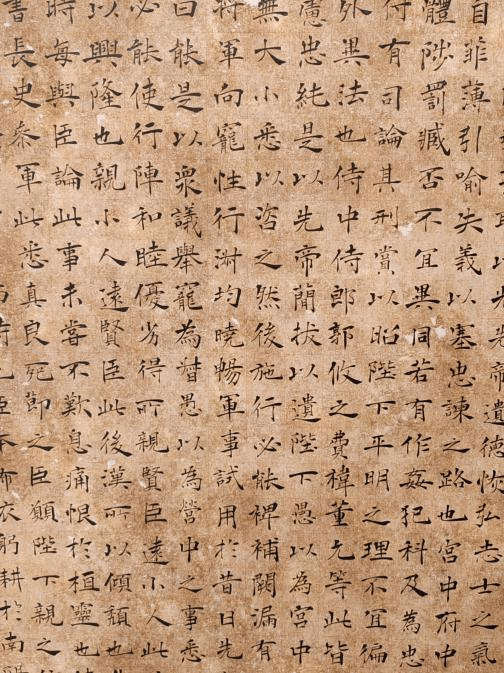 以光先帝遺德恢弘志士之氣
自菲薄引喻失義以塞忠諫之路也宮中府中
體陟罰臧否不宜異同若有作姦犯科及為忠
付有司論其刑賞以昭陛下平明之理不宜偏
外異法也侍中侍郎郭攸之費禕董允等此皆
慮忠純是以先帝簡拔以遺陛下愚以為宮中
無大小悉以咨之然後施行必能裨補闕漏有
將軍向寵性行淑均曉暢軍事試用於昔日先
曰能是以眾議舉寵為督愚以為營中之事悉
必能使行陣和睦優劣得所親賢臣遠小人此
以興隆也親小人遠賢臣此後漢所以傾頹也
時每與臣論此事未嘗不歎息痛恨於桓靈也
書長史參軍此悉真良死節之臣願陛下親之
臣本布衣躬耕於南陽